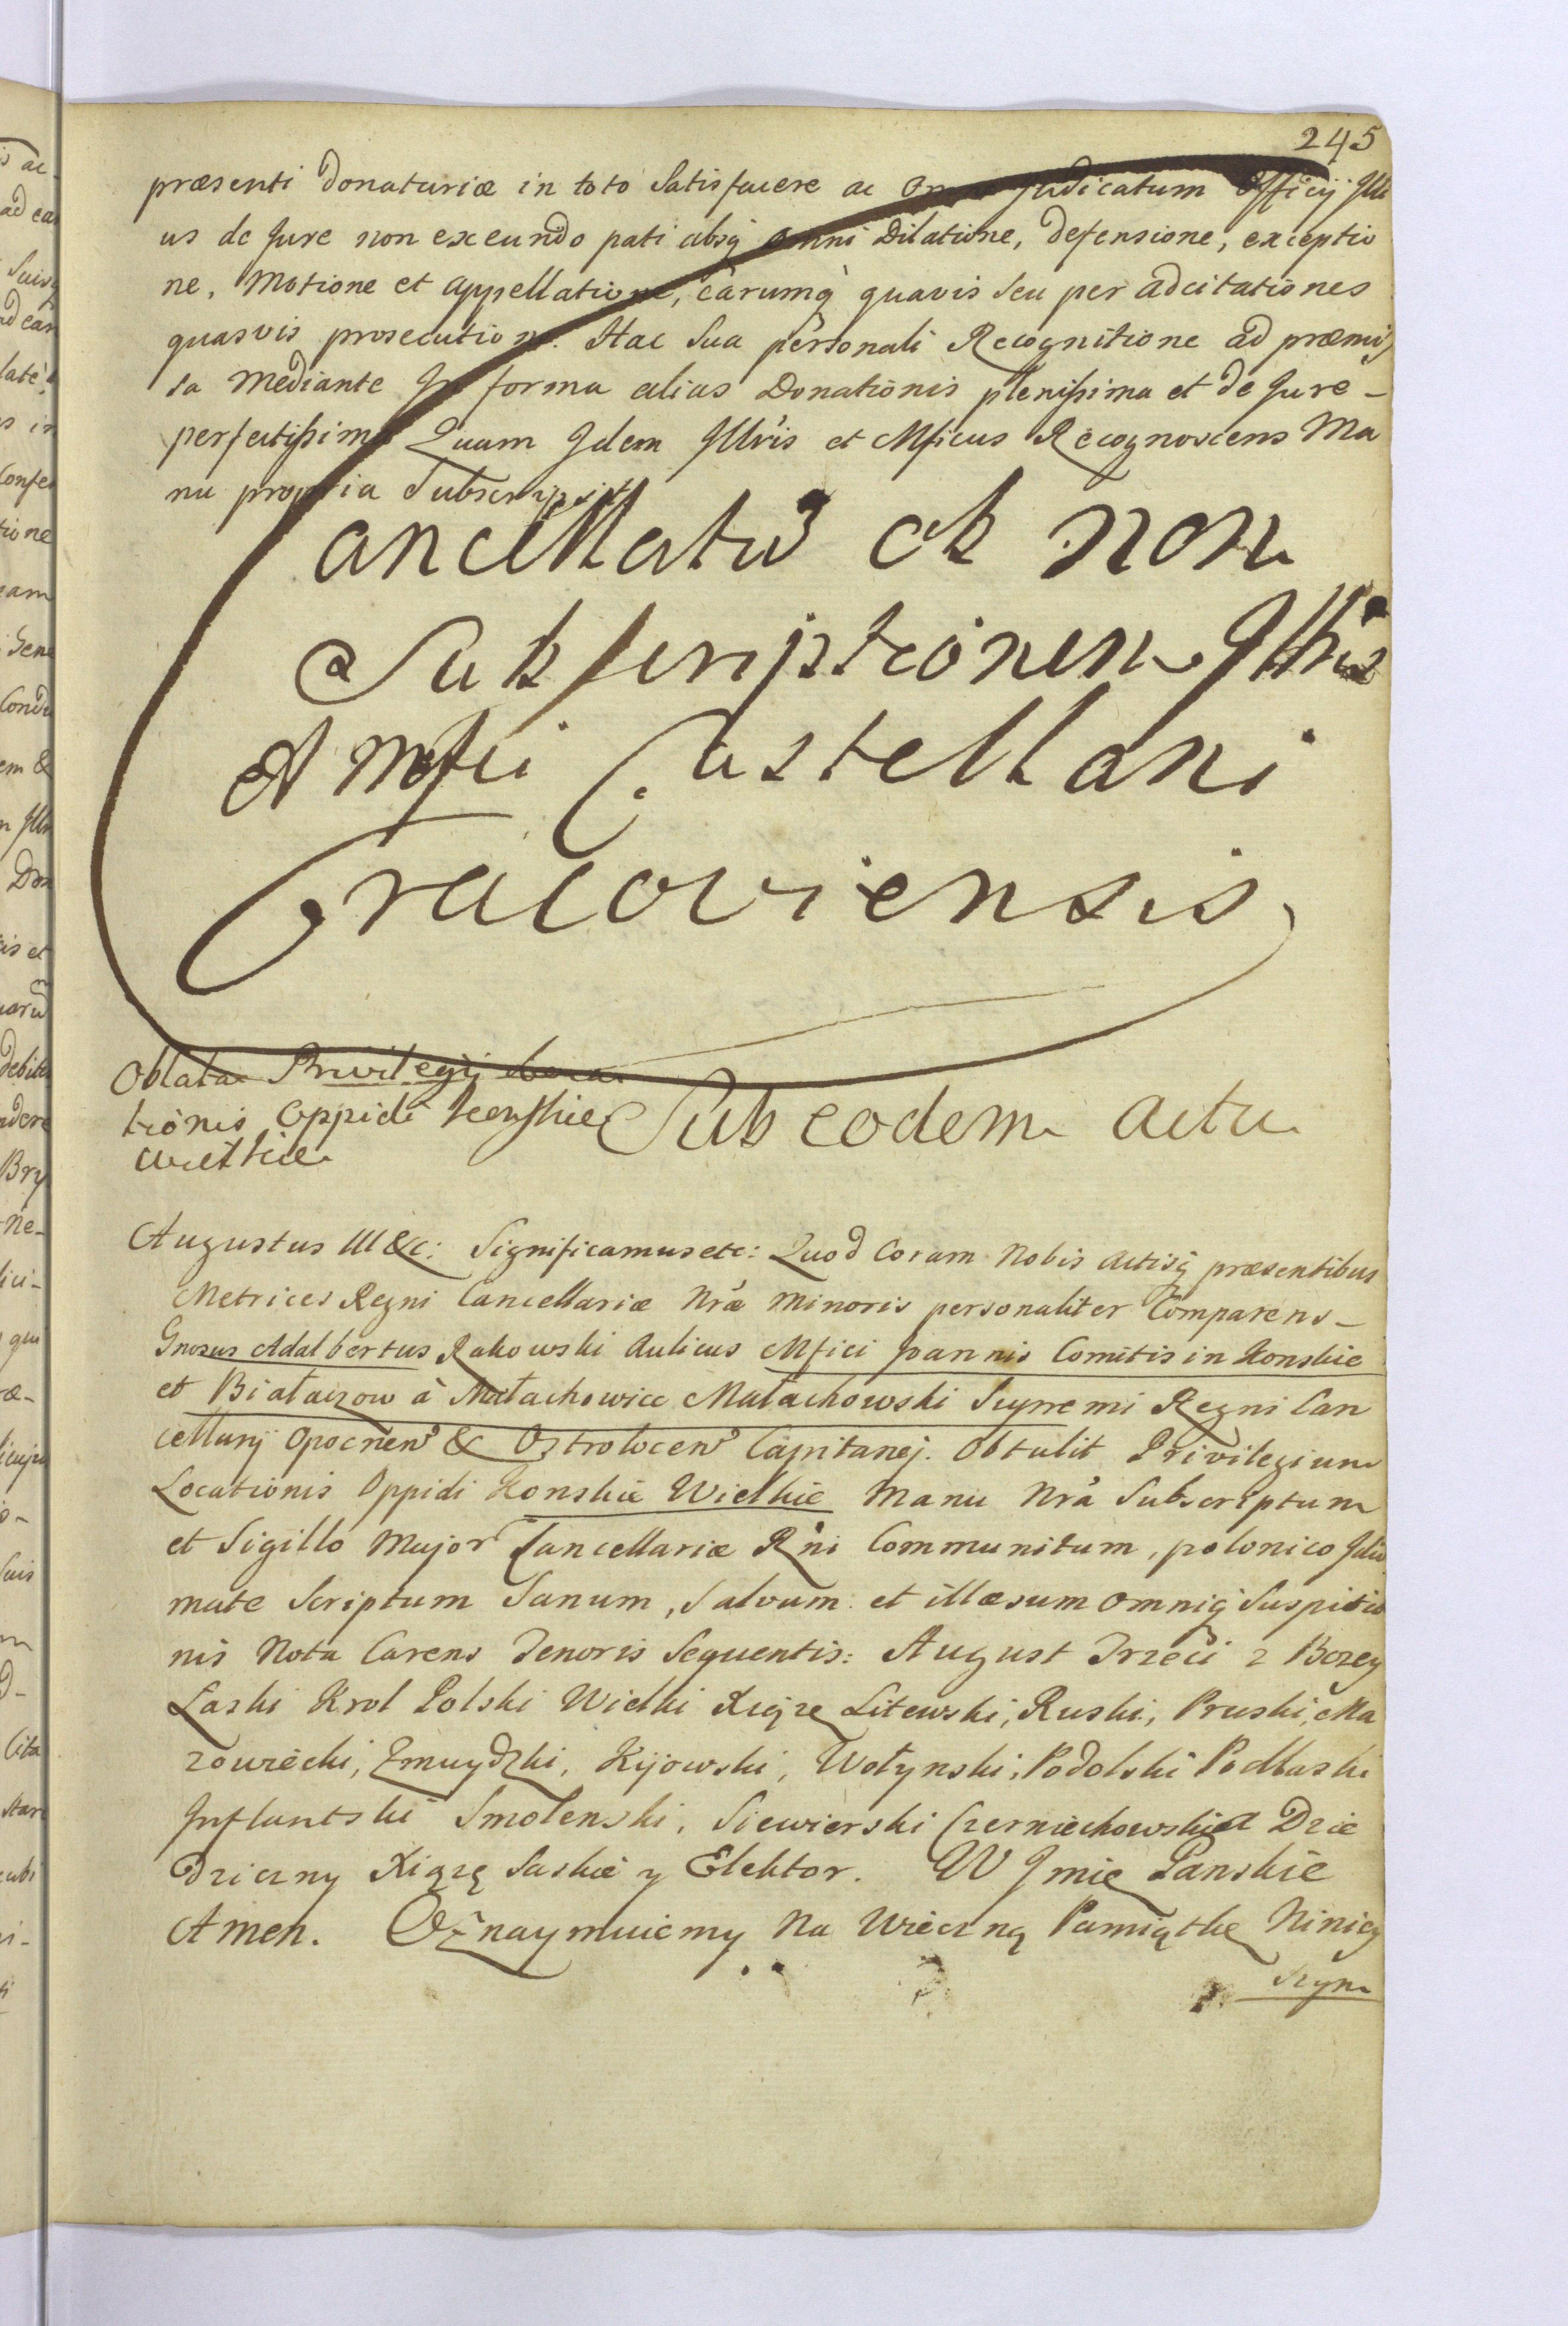 245
præsenti Donaturiæ in toto Satisfacere ac omne Judicatum Officij Illi
us de Jure non exeundo pati absq omni Dilatione, defensione, exceptio
ne, Motione et appellatione, earumq quavis seu per adcitationes
quasvis prosecutione. Hac Sua personali Recognitione ad præmis
sa Mediante In forma alias Donationis plenissima et de Jure -
perfectissima Quam Idem Illris et Mficus Recognoscens Ma
nu propria Subscripsit
Cancellatū ob non
Subscriptionem Illris
et Mfici Castellani
Cracoviensis
Oblata Privilegij Loca
tionis Oppidi Konskie
Wielkie
Sub eodem actu
Augustus III &c: Significamus etc: Quod Coram Nobis Actisq præsentibus
Metrices Regni Cancellariæ Nræ Minoris personaliter Comparens -
Gnosus Adalbertus Rakowski Aulicus Mfici Joannis Comitis in Konskie
et Białaczow à Małachowice Małachowski Supremi Regni Can
cellarij Opocnen & Ostrołocen Capitanej. Obtulit Privilegium
Locationis Oppidi Konskie Wielkie Manu Nrá Subscriptum
et Sigillo Major Cancellariæ Rni Communitum, polonico Idio
mate Scriptum Sanum, Salvum et illæsum omniq Suspitio
nis Nota Carens Tenoris Sequentis: August Trzeci z Bozey
Laski Krol Polski Wielki Xiąze Litewski, Ruski, Pruski, Ma
zowiecki, Zmuydzki, Kijowski, Wołynski, Podolski Podlaski
Inflantski Smolenski, Siewierski Czerniechowski a Dzie
dziczny Xiąze Saskie y Elektor. W Jmie Panskie
Amen. Oznaymuiemy Na Wieczną Pamiątkę Niniey
szym